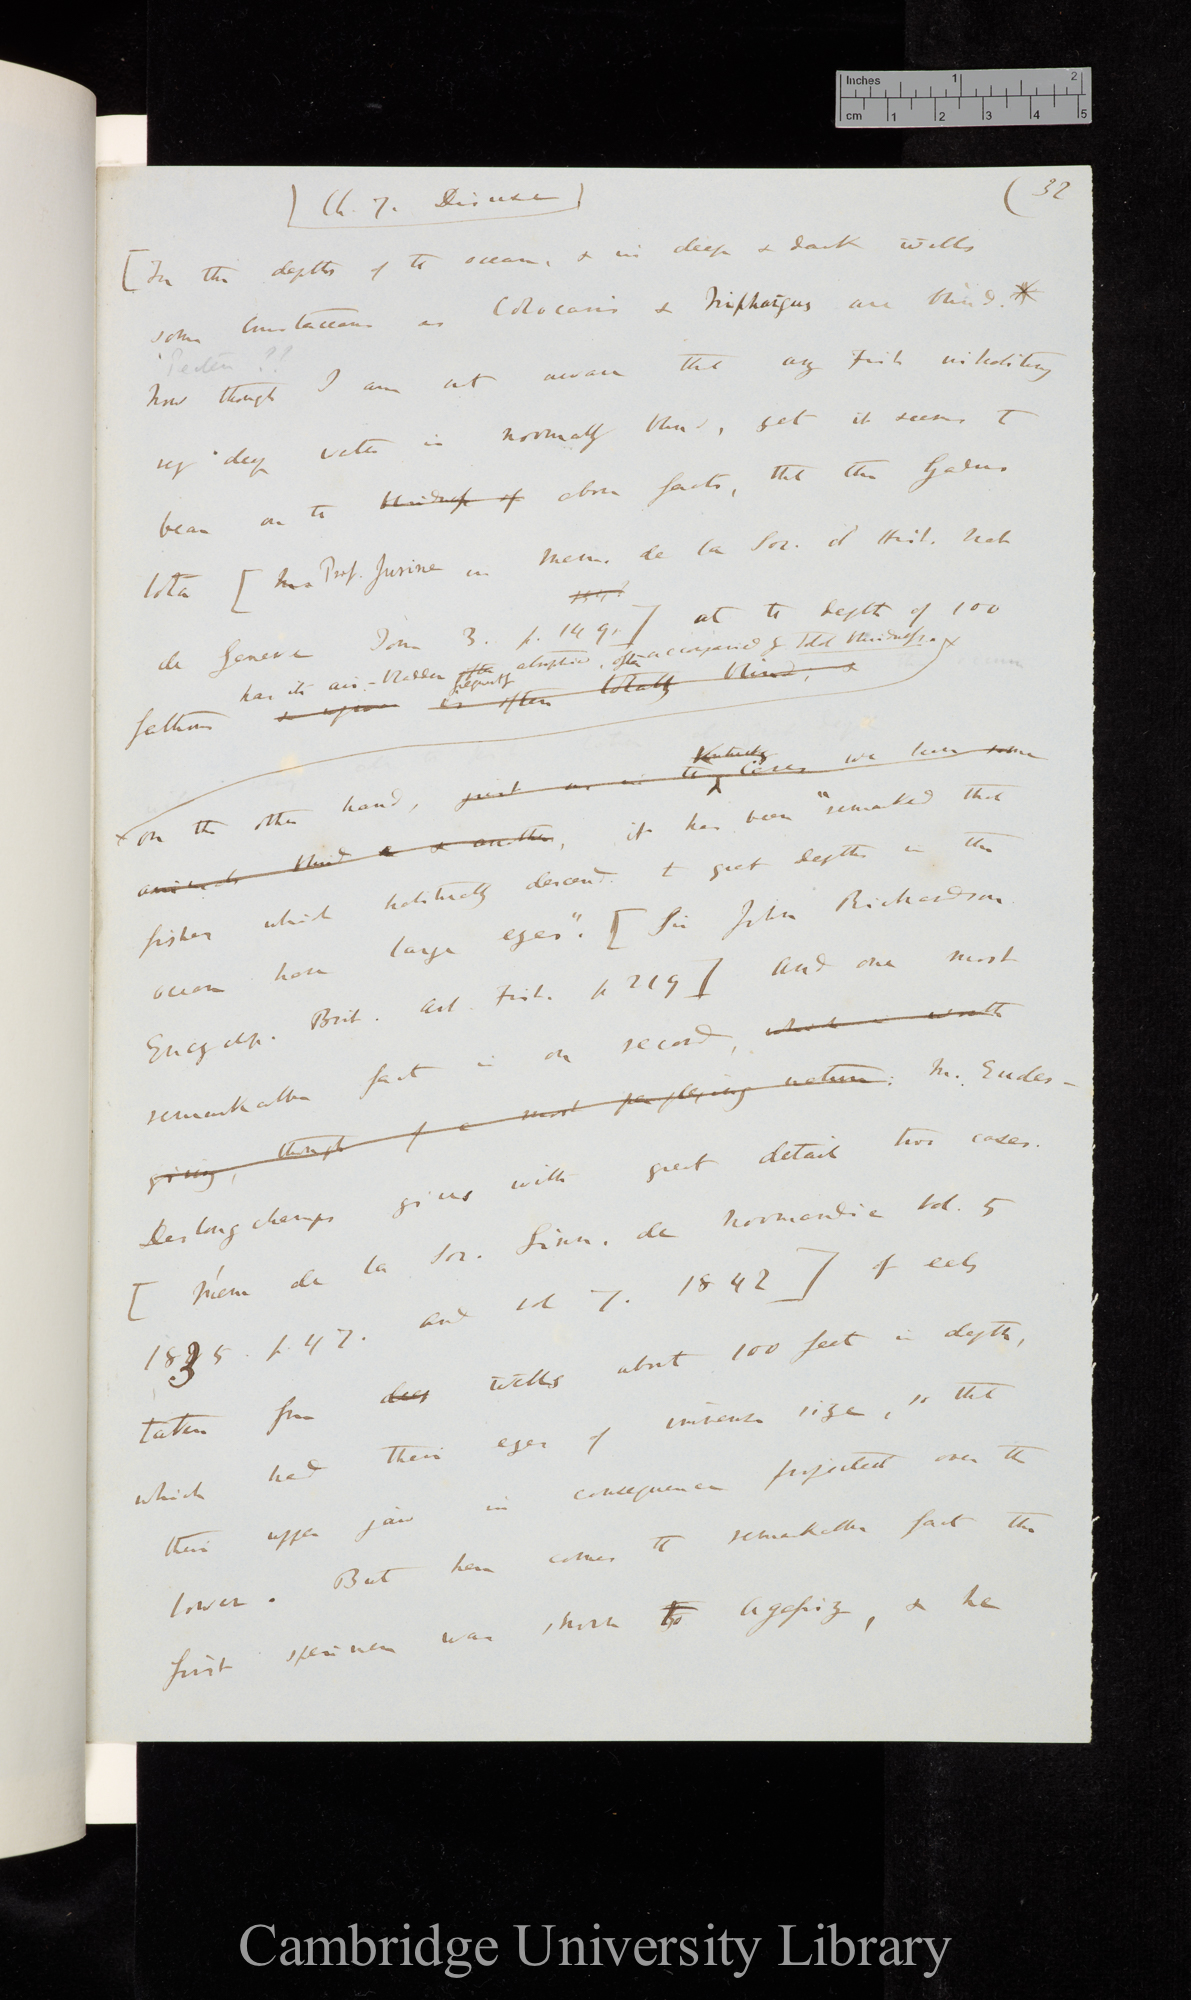 Inches 1 2
cm 1 2 3 4 5
Ch. 7. Disuse
(32
[In the depths of the ocean, & in deep & dark wells
some Crustaceans as Calocaris & Niphargus are blind.*
Pecten ??
Now though I am not aware that any Fish inhabiting
very deep water is normally blind, yet it seems to
bear on the blindness of above facts, that the Gadus
lota [ Prof. Jurine in Mem. de la Soc. d' Hist. Nat
de Geneve Tom 3. p. 149.] at the depth of 100
has its air-bladder often frequently absorbed, often accompanied by total blindness. x
fathoms is often totally blind, &
x on the other hand, just as in the Kentucky Caves we have some
animals blind & another, it has been "remarked that
fishes which habitually descend to great depths in the
ocean have large eyes". [Sir John Richardson
Encyclop. Brit. Art. Fish. p 219] and one most
remarkable fact is on record, which is worth
giving, though of a most perplexing nature: M. Eudes-
Deslongchamps gives with great detail two cases.
[Mem de la Soc. Linn. de Normandie vol. 5
1835. p. 47. and vol 7. 1842] of eels
taken from deep wells about 100 feet in depth,
which had their eyes of immense size, so that
their upper jaw in consequence projected over the
lower. But here comes the remarkable fact the
first specimen was shown to Agassiz, & he
Cambridge University Library